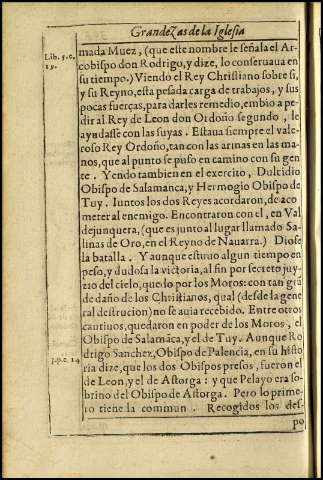 Grandezas de la Iglesia
Lib. 5. c.
19.
mada Muez, (que este nombre le señala el Ar-
cobispo don Rodrigo, y dize, lo conseruaua en
su tiempo.) Viendo el Rey Christiano sobre si,
y su Reyno, esta pesada carga de trabajos, y sus
pocas fuerças, para darles remedio, embio a pe-
dir al Rey de Leon don Ordoño segundo, le
ayudasse con las suyas. Estaua siempre el vale-
roso Rey Ordoño, tan con las armas en las ma-
nos, que al punto se puso en camino con su gen
te. Yendo tambien en el exercito, Dulcidio
Obispo de Salamanca, y Hermogio Obispo de
Tuy. Iuntos los dos Reyes acordaron, de aco
meter al enemigo. Encontraron con el, en Val
dejunquera, (que es junto al lugar llamado Sa-
linas de Oro, en el Reyno de Nauarra.) Diose
la batalla. Y aunque estuuo algun tiempo en
peso, y dudosa la victoria, al fin por secreto juy-
zio del cielo, quedo por los Moros: con tan grã
de daño de los Christianos, qual (desde la gene
ral destrucion) no se auia recebido. Entre otros
cautiuos, quedaron en poder de los Moros, el
Obispo de Salamãca, y el de Tuy. Aunque Ro
drigo Sanchez, Obispo de Palencia, en su histo
3. p. c. 14
ria dize, que los dos Obispos presos, fueron el
de Leon, y el de Astorga: y que Pelayo era so-
brino del Obispo de Astorga. Pero lo prime-
ro tiene la commun. Recogidos los des-
po